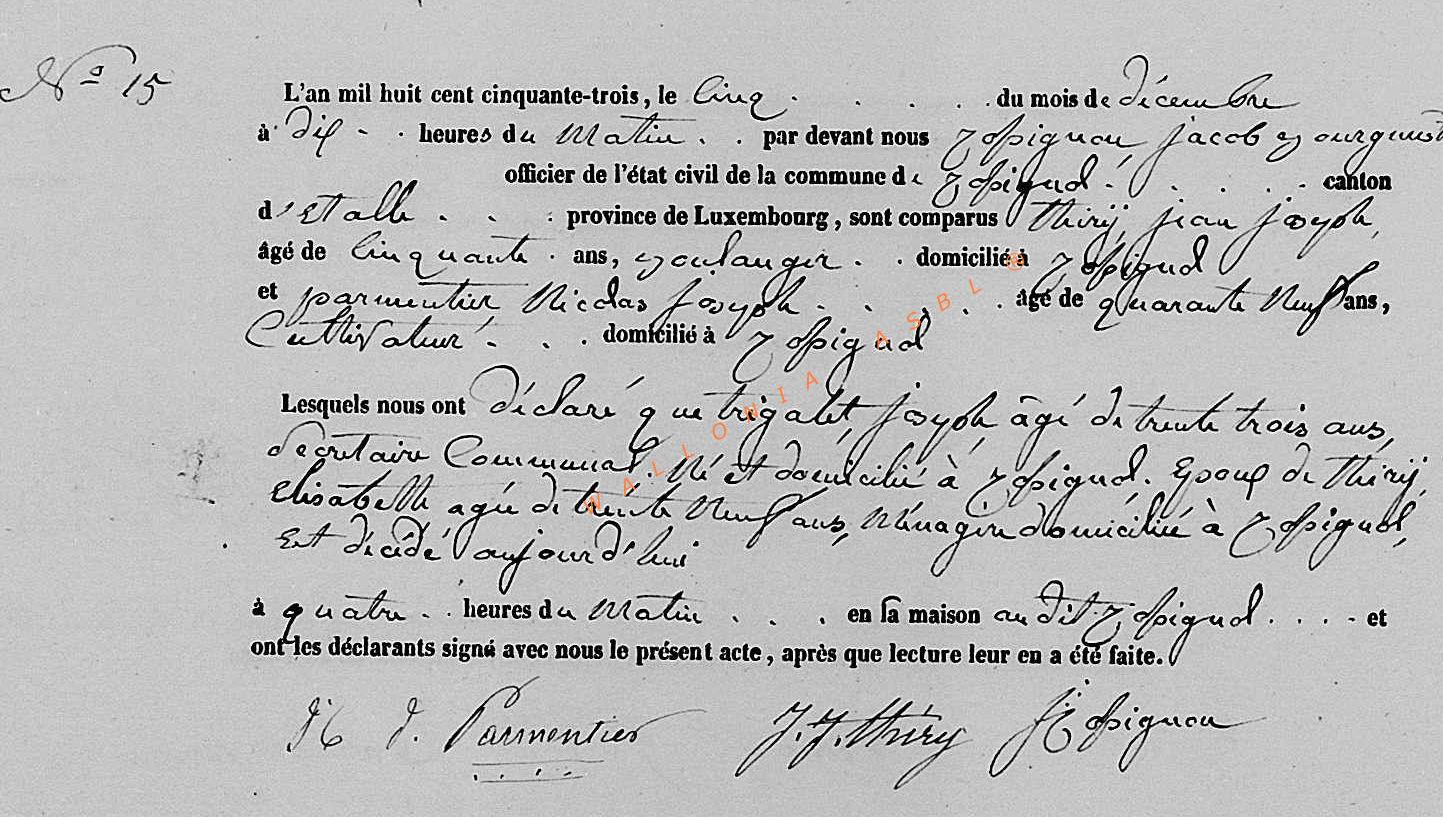 No 15
L'an mil huit cent cinquante-trois, le Cinq . . . . . du mois de décembre
à dix . . heures du Matin . . par devant nous Rossignon jacob Bourgmestre
officier de l'état civil de la commune de Rossignol . . . . . canton
d'Etalle . . . province de Luxembourg, sont comparus Thiry, jean joseph,
âgé de Cinquante . ans, Boulanger . . domicilié à Rossignol
et parmentier Nicolas Joseph . . . . . âgé de quarante Neuf ans,
Cultivateur . . . domicilié à Rossignol
Lesquels nous ont déclaré que trigalet, joseph, âgé de trente trois ans,
Secretaire Communal, Né et domicilié à Rossignol. Epoux de Thiry,
Elisabeth agée de trente Neuf ans, Ménagère domiciliée à Rossignol,
Est décédé aujourd'hui
à quatre . . heures du Matin . . . en sa maison audit Rossignol . . . . et
ont les déclarants signé avec nous le présent acte, après que lecture leur en a été faite.
Parmentier J. J. Thiry J Rossignon
WALLONIA ASBL ®